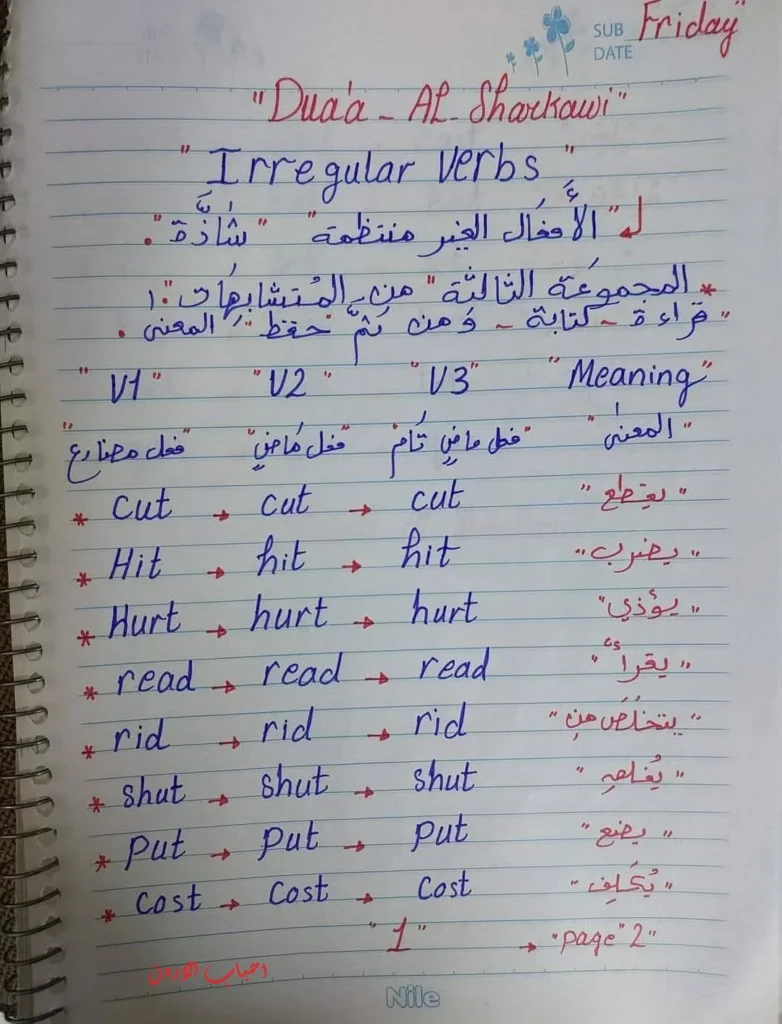 SUB Friday"
DATE
"Dua'a - AL-Sharkawi"
"Irregular verbs"
"الأَفعَال الغير منتظمة" "شَاذَّة".
* المجموعَة الثالثَة" من المُتشابِهَات": ١
"قراءة - كتابة - وَمن ثَمَّ "حفظ" المعنى.
"V1" "V2" "V3" "Meaning"
"فعل مضارع" "فعل مَاضٍ" "فعل ماضٍ تَام" "المعنى"
* cut → cut → cut "يقطع"
* Hit → hit → hit "يضرب"
* Hurt → hurt → hurt "يؤذي"
* read → read → read "يقرأ"
* rid → rid → rid "يتخلَصَ مِن"
* shut → shut → shut "يُغلق"
* put → put → put "يضع"
* cost → cost → cost "يُكَلِف"
"1" → "page" 2"
احباب الاردن
Nile